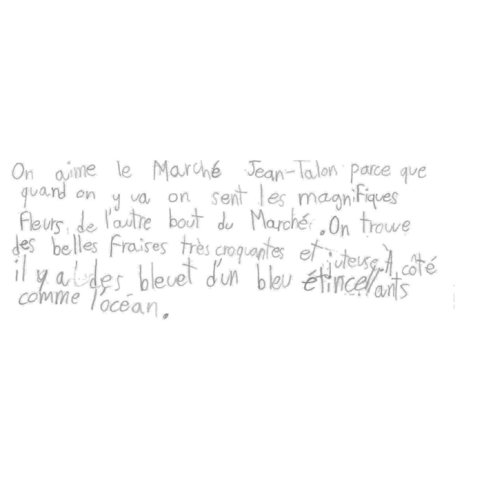 On aime le Marché Jean-Talon parce que
quand on y va on sent les magnifiques
fleurs, de l'autre bout du Marché. On trouve
des belles fraises très croquantes et juteuse. À côté
il y a des bleuet d'un bleu étincellants
comme l'océan.